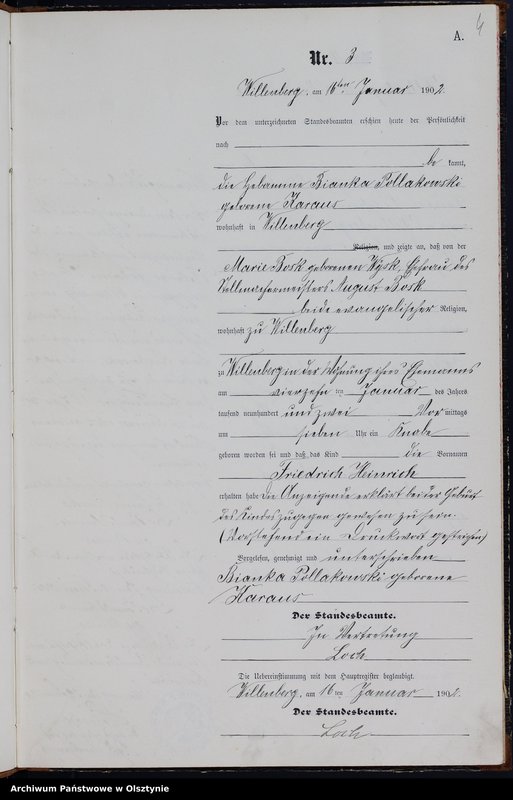 4
A.
Nr. 3
Willenberg, am 16ten Januar 1902.
Vor dem unterzeichneten Standesbeamten erschien heute der Persönlichkeit
nach
be kannt,
die Hebamme Bianka Pollakowski
geborene Karaus
wohnhaft in Willenberg
Religion, und zeigte an, daß von der
Marie Bosk geborenen Wysk, Ehefrau des
Stellmachermeisters August Bosk
beide evangelischer Religion,
wohnhaft zu Willenberg
zu Willenberg in der Wohnung ihres Ehemanns
am vierzehn ten Januar des Jahres
tausend neunhundert und zwei Vor mittags
um sieben Uhr ein Knabe
geboren worden sei und daß das Kind die Vornamen
Friedrich Heinrich
erhalten habe Die Anzeigende erklärt bei der Geburt
des Kindes zugegen gewesen zu sein.
(Vorstehend ein Druckwort gestrichen)
Vorgelesen, genehmigt und unterschrieben
Bianka Pollakowski geborene
Karaus
Der Standesbeamte.
In Vertretung
Loch
Die Uebereinstimmung mit dem Hauptregister beglaubigt.
Willenberg, am 16ten Januar 1902.
Der Standesbeamte.
Loch
Archiwum Państwowe w Olsztynie